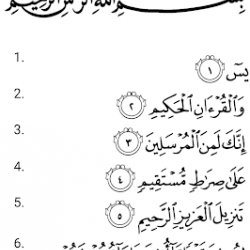 بِسْمِ ٱللَّهِ ٱلرَّحْمَٰنِ ٱلرَّحِيمِ
1. يسٓ ١
2. وَٱلْقُرْءَانِ ٱلْحَكِيمِ ٢
3. إِنَّكَ لَمِنَ ٱلْمُرْسَلِينَ ٣
4. عَلَىٰ صِرَٰطٍ مُّسْتَقِيمٍ ٤
5. تَنزِيلَ ٱلْعَزِيزِ ٱلرَّحِيمِ ٥
6.